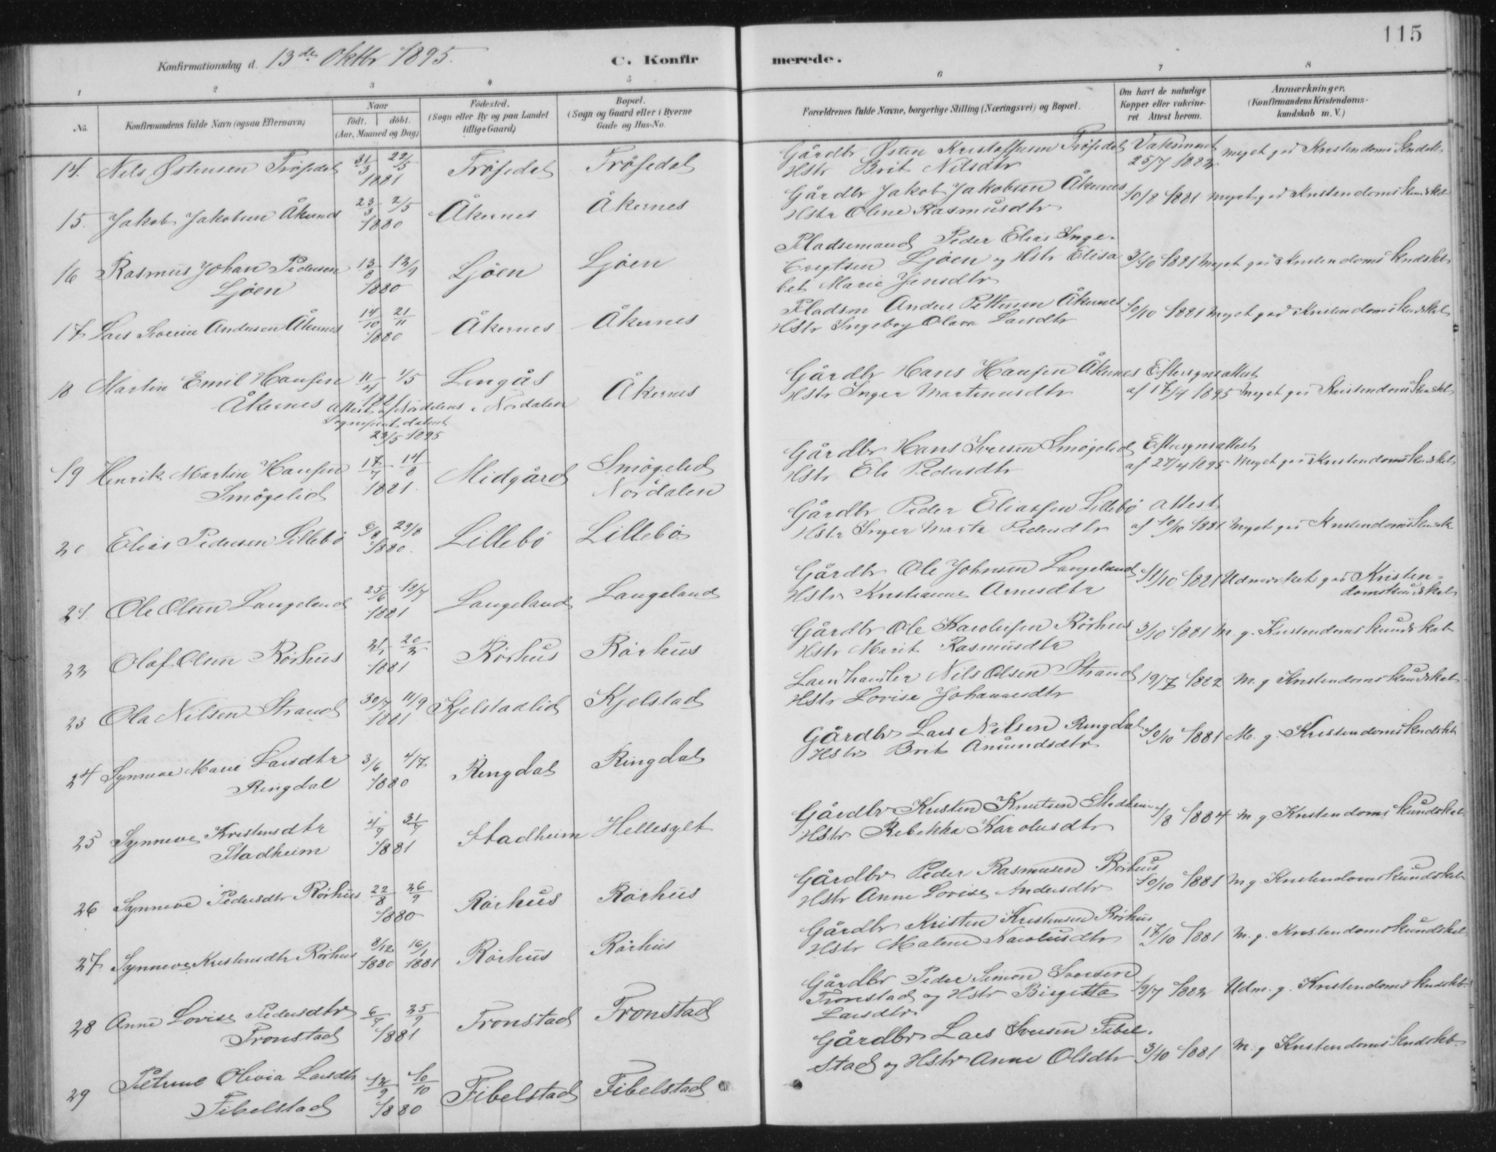 115
Konfirmationsdag d. 13de Oktbr 1895.
C. Konfirmerede.
1 2 3 4 5 6 7 8
No. Konfirmandens fulde Navn (ogsaa Efternavn) Naar født. døbt. (Aar, Maaned og Dag) Fødested. (Sogn eller By og paa Landet tillige Gaard) Bopæl. (Sogn og Gaard eller i Byerne Gade og Hus-No. Forældrenes fulde Navne, borgerlige Stilling (Næringsvei) og Bopæl. Om havt de naturlige Kopper eller vaksineret. Attest herom. Anmærkninger. (Konfirmandens Kristendomskundskab m. V.)
14. Nils Østensen Trøsedal 31/3 22/5 1881 Trøsedal Trøsedal Gårdbr Østen Kristoffersen Trøsedal Hstr Brit Nilsdtr Vaksineret 25/7 1882 meget god Kristendomskundskab
15. Jakob Jakobsen Åkernes 23/3 2/5 1880 Åkernes Åkernes Gårdbr Jakob Jakobsen Åkernes Hstr Oline Rasmusdtr 10/8 1881 meget god Kristendomskundskab
16 Rasmus Johan Pedersen Ljøen 13/8 13/9 1880 Ljøen Ljøen Pladsemand Peder Elias Ingebrigtsen Ljøen og Hstr Elisabet Marie Jensdtr 3/10 1881 meget god Kristendomskundskb
17 Lars Severin Andersen Åkernes 14/10 21/11 1880 Åkernes Åkernes Pladsm Anders Pettersen Åkernes Hstr Ingeborg Olava Larsdtr 10/10 1881 meget god Kristendomskundskab
18 Martin Emil Hansen Åkernes 1/5 Lingås i Nordalen Åkernes Gårdbr Hans Hansen Åkernes Hstr Inger Martinusdtr Eftersynsattest af 17/4 1895 Meget god Kristendomskundskab
Attest af Nordalens Sognepræst, dateret 29/5 1895
19 Henrik Martin Hansen Smøgelid 17/7 14/8 1881. Midgård Smøgelid Nordalen Gårdbr Hans Iversen Smøgelid Hstr Eli Pedersdtr Eftersynsattest af 27/4 1895 Meget god Kristendomskundskab
20 Elias Pedersen Lillebø 29/8 1880. Lillebø Lillebø Gårdbr Peder Eliassen Lillebø Hstr Inger Marte Pedersdtr attest af 10/10 1881 Meget god Kristendomskundskab
21 Ole Olsen Langeland 25/6 10/7 1881 Langeland Langeland Gårdbr Ole Johnsen Langeland Hstr Kristianne Arnesdtr 11/10 1881 Udmærket god Kristendomskundskab
22 Olaf Olsen Rørhus 21/1 20/2 1881 Rørhus Rørhus Gårdbr Ole Karolusen Rørhus Hstr Marit Rasmusdtr 3/10 1881 M. g. Kristendomskundskab
23 Ola Nilsen Strand 30/7 11/9 1881 Kjelstadlid Kjelstad Landhandler Nils Olsen Strand Hstr Lovise Johannesdtr 19/7 1882 M. g Kristendomskundskab
24 Synneve Marie Larsdtr Ringdal 3/6 4/7 1880 Ringdal Ringdal Gårdbr Lars Nilsen Ringdal Hstr Brit Amundsdtr 10/10 1881 M. g. Kristendomskundskb
25 Synneve Kristensdtr Stadheim 4/7 31/7 1881 Stadheim Hellesylt Gårdbr Kristen Knutsen Stadheim Hstr Rebekka Karolusdtr 1/8 1884 M g Kristendomskundskab
26 Synneve Pedersdtr Rørhus 22/8 26/9 1880 Rørhus Rørhus Gårdbr Peder Rasmusen Rørhus Hstr Anne Lovise Andersdtr 10/10 1881 M g. Kristendomskundskab
27 Synneve Kristensdtr Rørhus 9/12 1880 16/1 1881 Rørhus Rørhus Gårdbr Kristen Kristensen Rørhus Hstr Malene Karolusdtr 17/10 1881 M. g. Kristendomskundskab
28 Anne Lovise Pedersdtr Tronstad 6/9 25/9 1881 Tronstad Tronstad Gårdbr Peder Simon Iversen Tronstad og Hstr Birgitta Larsdtr. 19/7 1882 Udm. g. Kristendomskundskb
29 Petrine Olivia Larsdtr Fibelstad 12/9 10/10 1880 Fibelstad Fibelstad Gårdbr Lars Iversen Fibelstad og Hstr Anne Olsdtr 3/10 1881 M. g Kristendomskundskb